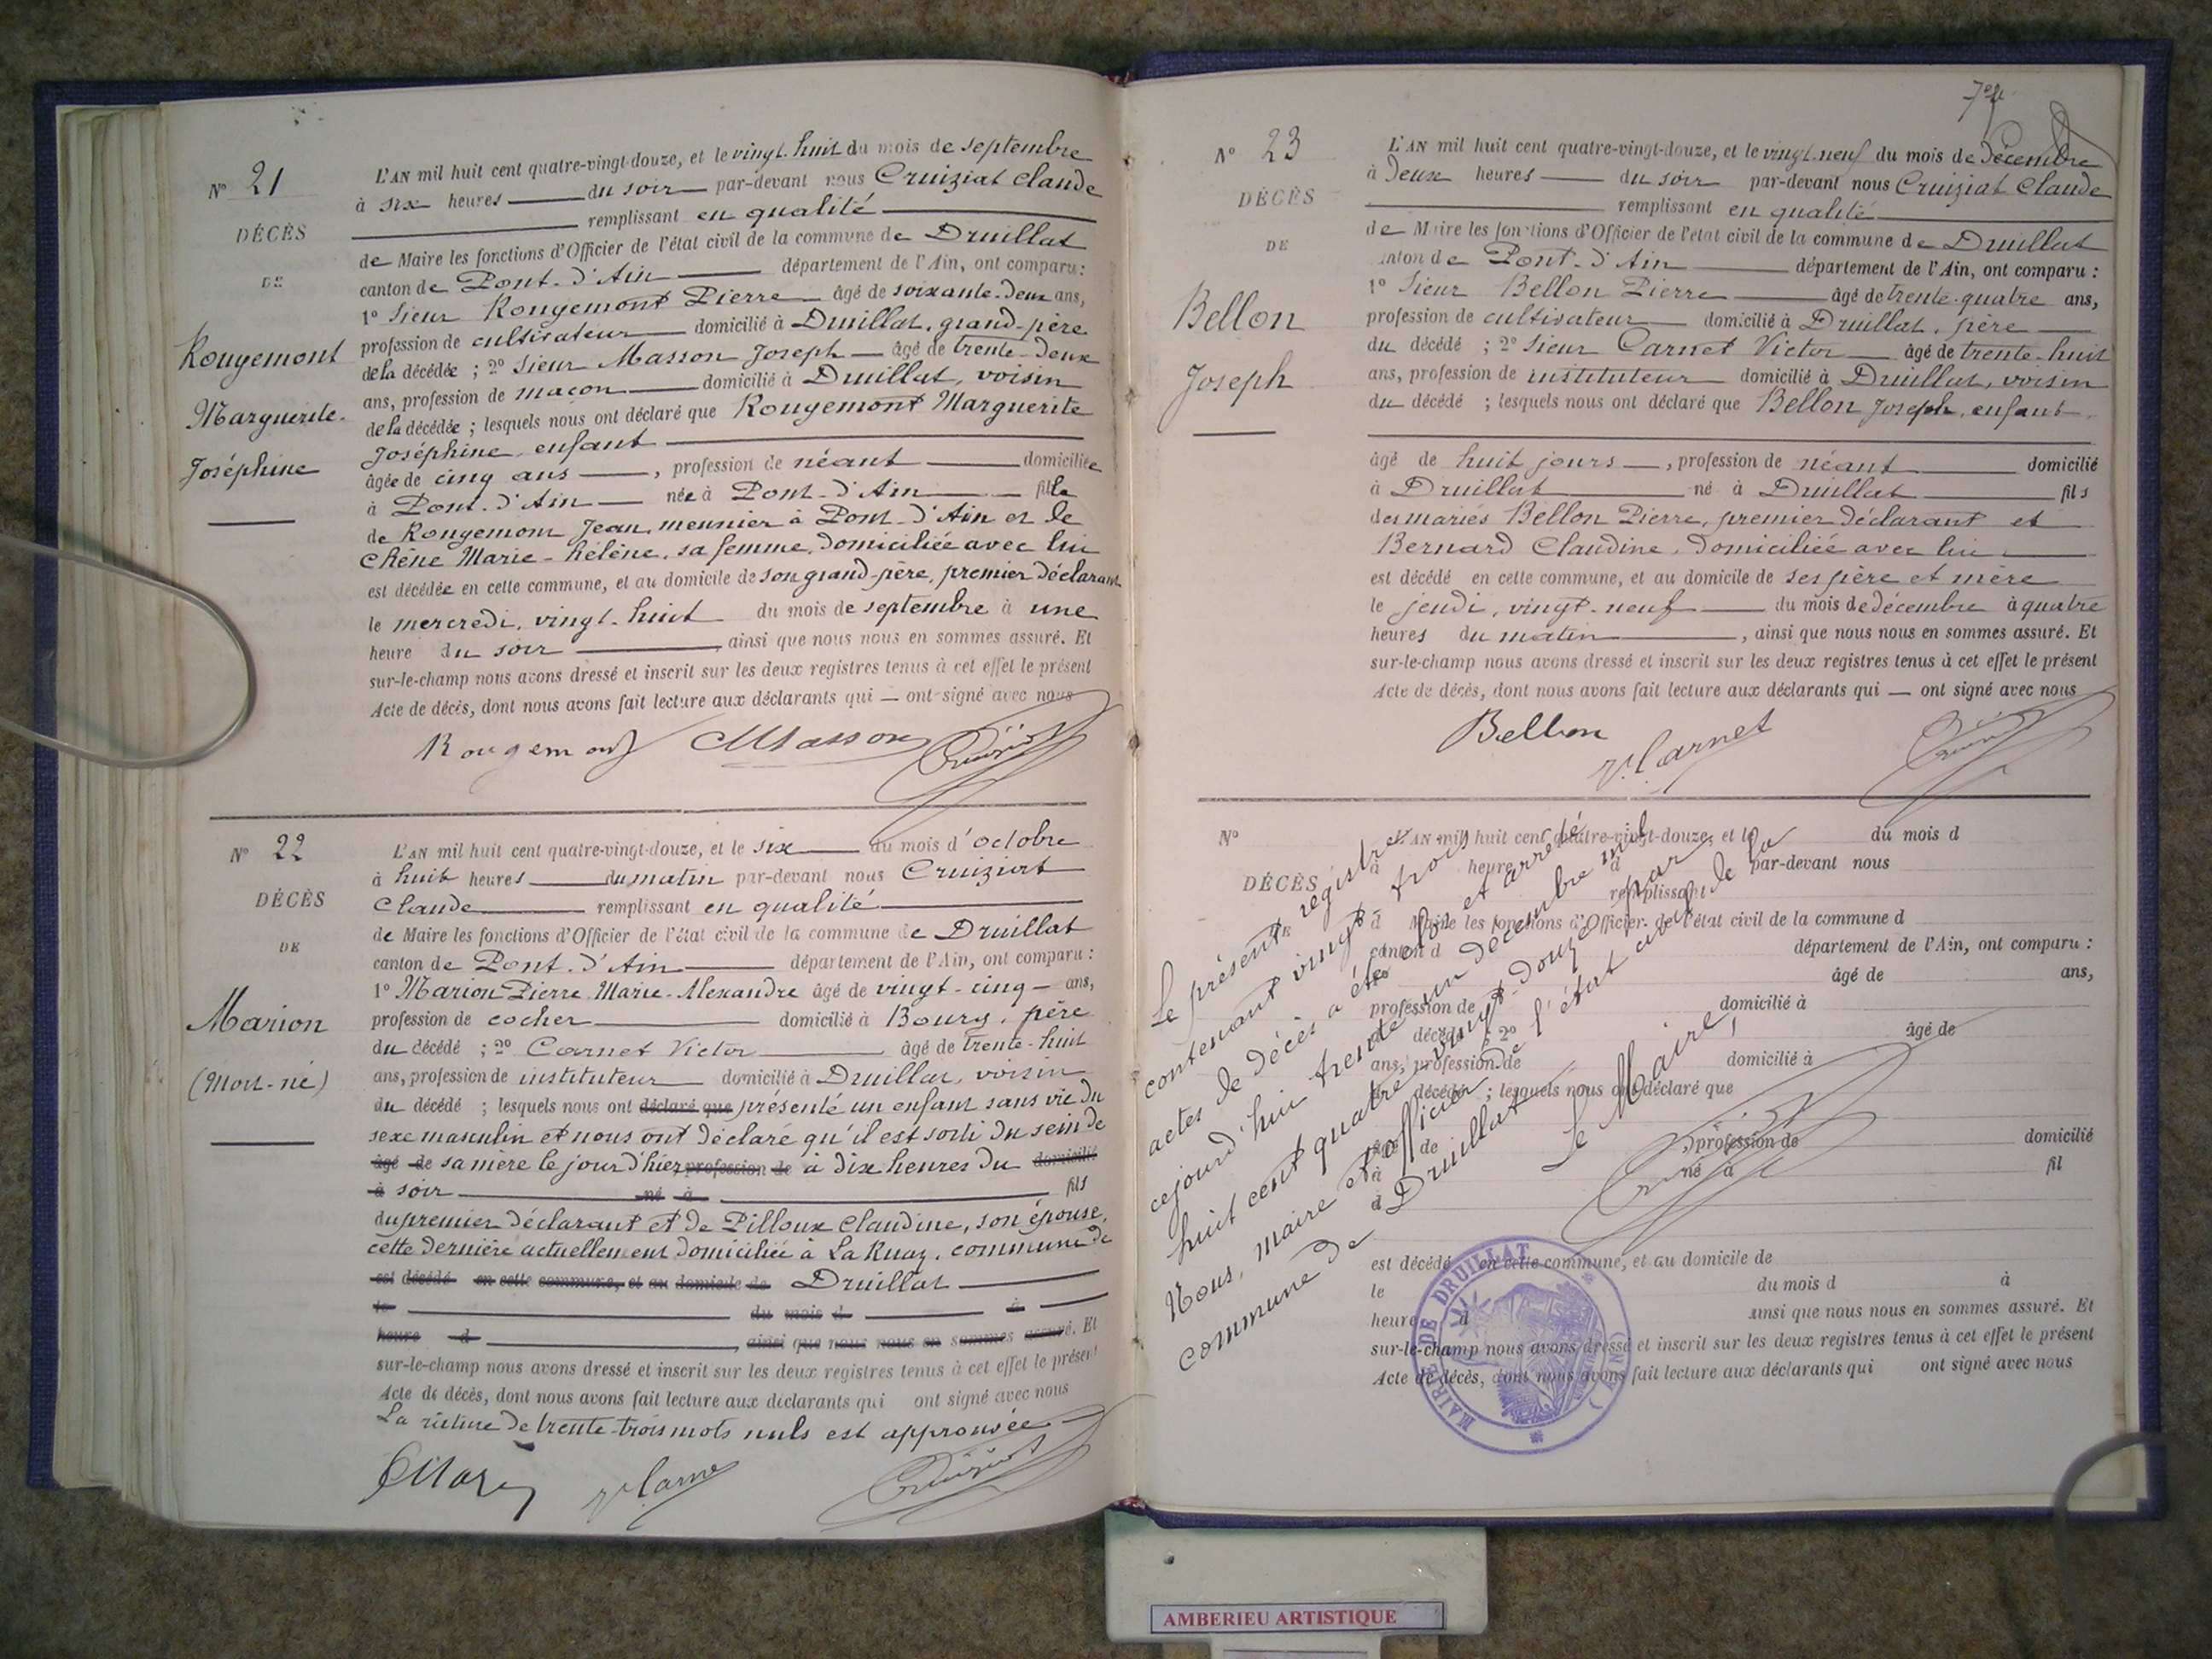 N° 21
DÉCÈS
DE
Rougemont
Marguerite-
Joséphine
L'AN mil huit cent quatre-vingt-douze, et le vingt-huit du mois de septembre
à six heures du soir par-devant nous Cruiziat Claude
remplissant en qualité
de Maire les fonctions d'Officier de l'état civil de la commune de Druillat
canton de Pont-d'Ain département de l'Ain, ont comparu :
1° Sieur Rougemont Pierre âgé de soixante-deux ans,
profession de cultivateur domicilié à Druillat, grand-père
de la décédée ; 2° Sieur Masson Joseph âgé de trente-deux
ans, profession de maçon domicilié à Druillat, voisin
de la décédée ; lesquels nous ont déclaré que Rougemont Marguerite
Joséphine, enfant
âgée de cinq ans, profession de néant domiciliée
à Pont-d'Ain née à Pont-d'Ain fille
de Rougemont Jean, meunier à Pont-d'Ain et de
Chêne Marie-Hélène, sa femme, domiciliée avec lui
est décédée en cette commune, et au domicile de son grand-père, premier déclarant
le mercredi, vingt-huit du mois de septembre à une
heure du soir, ainsi que nous nous en sommes assuré. Et
sur-le-champ nous avons dressé et inscrit sur les deux registres tenus à cet effet le présent
Acte de décès, dont nous avons fait lecture aux déclarants qui — ont signé avec nous
Rougemont Masson Cruiziat
N° 22
DÉCÈS
DE
Marion
(Mort-né)
L'AN mil huit cent quatre-vingt-douze, et le six du mois d'octobre
à huit heures du matin par-devant nous Cruiziat
Claude remplissant en qualité
de Maire les fonctions d'Officier de l'état civil de la commune de Druillat
canton de Pont-d'Ain département de l'Ain, ont comparu :
1° Marion Pierre Marie-Alexandre âgé de vingt-cinq ans,
profession de cocher domicilié à Bourg, père
du décédé ; 2° Carnet Victor âgé de trente-huit
ans, profession de instituteur domicilié à Druillat, voisin
du décédé ; lesquels nous ont déclaré que présenté un enfant sans vie du
sexe masculin et nous ont déclaré qu'il est sorti du sein de
âgé de sa mère le jour d'hier profession de à dix heures du domicilié
à soir né à fils
du premier déclarant et de Pilloux Claudine, son épouse,
cette dernière actuellement domiciliée à La Ruaz, commune de
est décédé en cette commune, et au domicile de Druillat
le du mois d à
heure d, ainsi que nous nous en sommes assuré. Et
sur-le-champ nous avons dressé et inscrit sur les deux registres tenus à cet effet le présent
Acte de décès, dont nous avons fait lecture aux déclarants qui ont signé avec nous
La rature de trente-trois mots nuls est approuvée
V. Carnet Cruiziat
N° 23
DÉCÈS
DE
Bellon
Joseph
L'AN mil huit cent quatre-vingt-douze, et le vingt-neuf du mois de décembre
à deux heures du soir par-devant nous Cruiziat Claude
remplissant en qualité
de Maire les fonctions d'Officier de l'état civil de la commune de Druillat
canton de Pont-d'Ain département de l'Ain, ont comparu :
1° Sieur Bellon Pierre âgé de trente-quatre ans,
profession de cultivateur domicilié à Druillat, père
du décédé ; 2° Sieur Carnet Victor âgé de trente-huit
ans, profession de instituteur domicilié à Druillat, voisin
du décédé ; lesquels nous ont déclaré que Bellon Joseph, enfant
âgé de huit jours, profession de néant domicilié
à Druillat né à Druillat fils
des mariés Bellon Pierre, premier déclarant et
Bernard Claudine, domiciliée avec lui
est décédé en cette commune, et au domicile de ses père et mère
le jeudi, vingt-neuf du mois de décembre à quatre
heures du matin, ainsi que nous nous en sommes assuré. Et
sur-le-champ nous avons dressé et inscrit sur les deux registres tenus à cet effet le présent
Acte de décès, dont nous avons fait lecture aux déclarants qui — ont signé avec nous
Bellon V. Carnet Cruiziat
N°
DÉCÈS
DE
L'AN mil huit cent quatre-vingt-douze, et le du mois d
à heure d par-devant nous
remplissant
d Maire les fonctions d'Officier de l'état civil de la commune d
canton d département de l'Ain, ont comparu :
1° âgé de ans,
profession de domicilié à
décédé ; 2° âgé de
ans, profession de domicilié à
décédé ; lesquels nous ont déclaré que
âgé de , profession de domicilié
à né à fil
d
est décédé en cette commune, et au domicile de
le du mois d à
heure d ainsi que nous nous en sommes assuré. Et
sur-le-champ nous avons dressé et inscrit sur les deux registres tenus à cet effet le présent
Acte de décès, dont nous avons fait lecture aux déclarants qui ont signé avec nous
Le présent registre
contenant vingt-trois
actes de décès a été clos et arrêté
cejourd'hui trente-un décembre mil
huit cent quatre-vingt-douze par
Nous, maire et officier de l'état civil de la
commune de Druillat
Le Maire,
Cruiziat
MAIRIE DE DRUILLAT (AIN)
AMBERIEU ARTISTIQUE